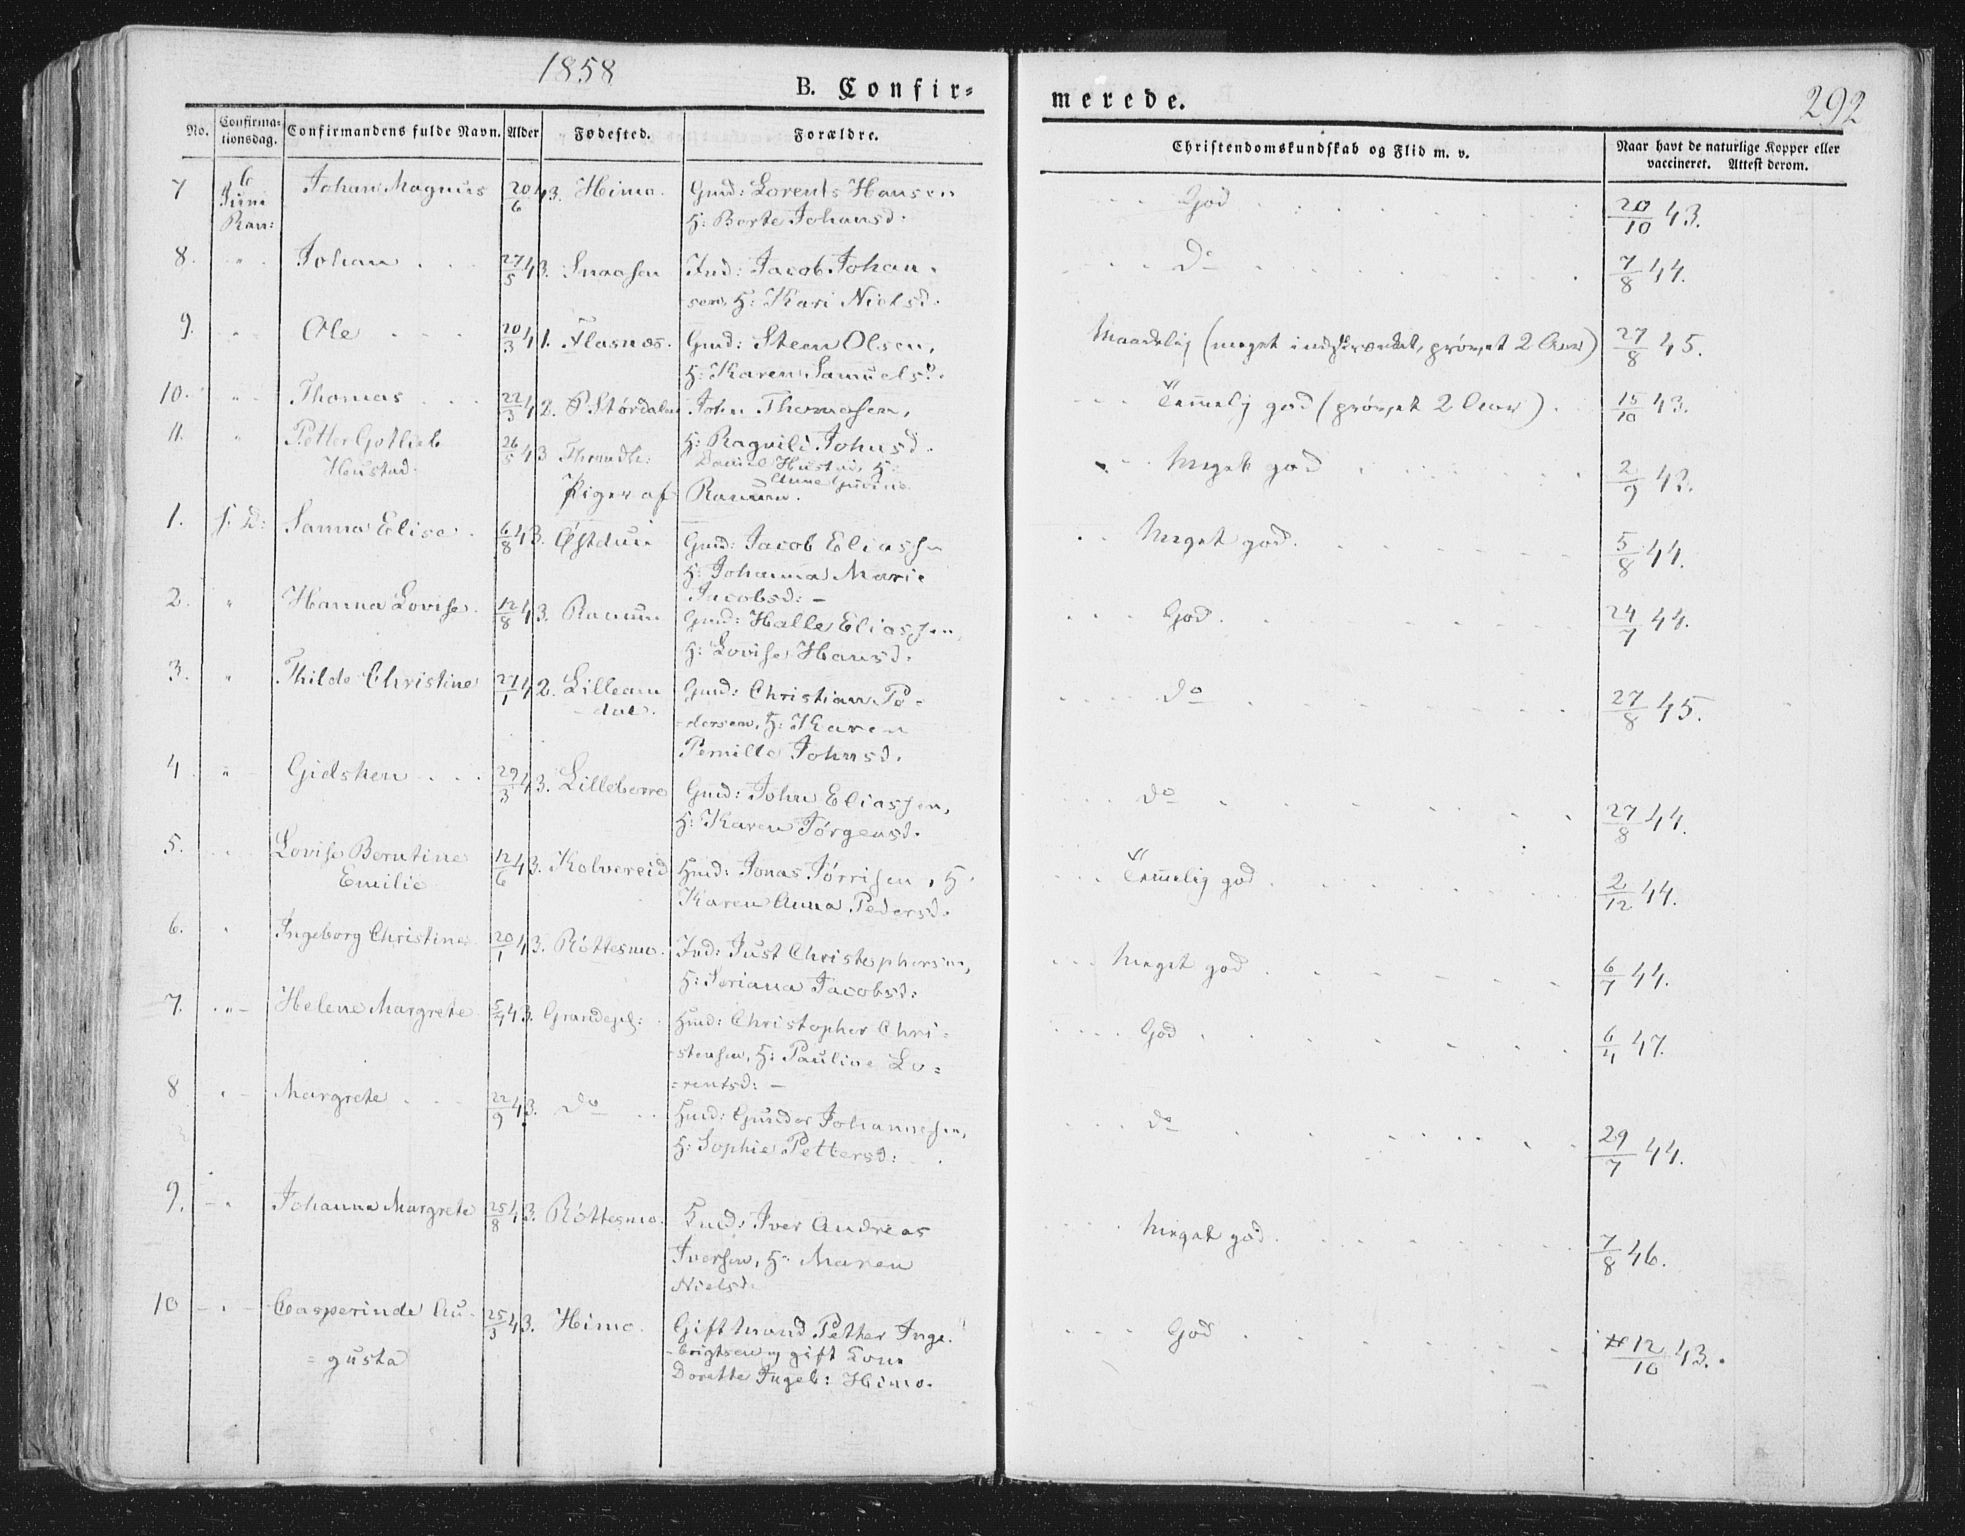 1858
B. Confir=
merede.
292
No. Confirma=tionsdag. Confirmandens fulde Navn. Alder Fødested. Forældre. Christendomskundskab og Flid m. v. Naar havt de naturlige Kopper eller vaccineret. Attest derom.
7 6 Juni Ran: Johan Magnus 20/6 43. Himo. Gmd: Lorents Hansen God 20/10 43.
H: Berte Johansd:
8. " Johan 27/5 43. Snaasen Ind: Jacob Johan- Do 7/8 44.
sen, H: Kari Nielsd.
9. " Ole 20/3 41. Flasnæs. Gmd: Steen Olsen, Maadelig (meget indskrænket, prøvet 2 Aar) 27/8 45.
H: Karen Samuelsd.
10. " Thomas 22/3 42. Størdalen John Thomasen, Temmelig god (prøvet 2 Aar). 15/10 43.
H: Ragnili Johnsd.
11. " Petter Gotlieb 26/5 43 Throndh: Daniel Hustad, H: Meget god 2/9 43.
Hustad. Anne
Piger af Ranum.
1. f. D: Sanna Elise. 6/8 43. Østduin Gmd: Jacob Eliassen Meget god. 5/8 44.
H: Johanna Marie
Jacobsd: -
2. " Hanna Lovise. 12/8 43. Ranum Gmd: Halle Eliassen, God. 24/7 44.
H: Lovise Hansd.
3. " Thilde Christine 27/1 42. Lilleamdal. Gmd: Christian Pe- Do 27/8 45.
dersen, H: Karen
Pernille Johnsd.
4 " Gidsken 29/3 43. Lilleborre Gmd: John Eliassen, Do 27/8 44.
H: Karen Jørgensd.
5. Lovise Berntine 12/6 43. Kolvereid Hmd: Jonas Jørrisen, H. Temmelig god 2/12 44.
Emilie Karen Anna Pedersd.
6. " Ingeborg Christine 20/1 43. Røttesmo. Ind: Just Christophersen, Meget god 6/7 44.
H: Seriana Jacobsd:
7. " Helene Margrete 43. Grandepl: Hmd: Christopher Chri- God 6/4 47.
stensen, H: Pauline Lo=
=rentsd: -
8 " Margrete 22/9 43. Do Hmd: Gunder Johannesen, Do 29/7 44.
H: Sophie Pettersd:
9. " Johanna Margrete 25/8 43. Røttesmo. Ind: Iver Andreas Meget god. 7/8 46.
Iversen, H: Maren
Nielsd.
10 " Casperinde Au- 25/3 43. Himo. Gift Mand Petter Inge- God 12/10 43.
=gusta -brigtsen og gift Kone
Dorette Ingeb: Himo.